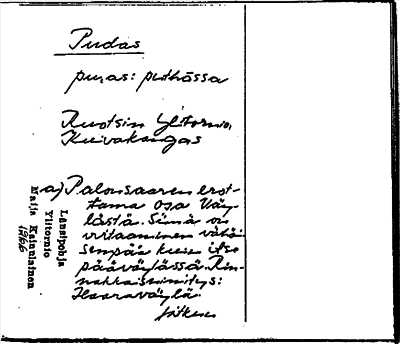 Pudas
puđas: puthássa
Ruotsin Ylitornio,
Kuivakangas
a) Palonsaaren erot-
tama osa Väy-
lästä. Siinä on
virtaaminen vähä-
sempää kuin itse
pääväylässä. Rin-
nakkaisnimitys:
Haaraväylä.
jatkuu
Länsipohja
Ylitornio
Maija Kainulainen
1966